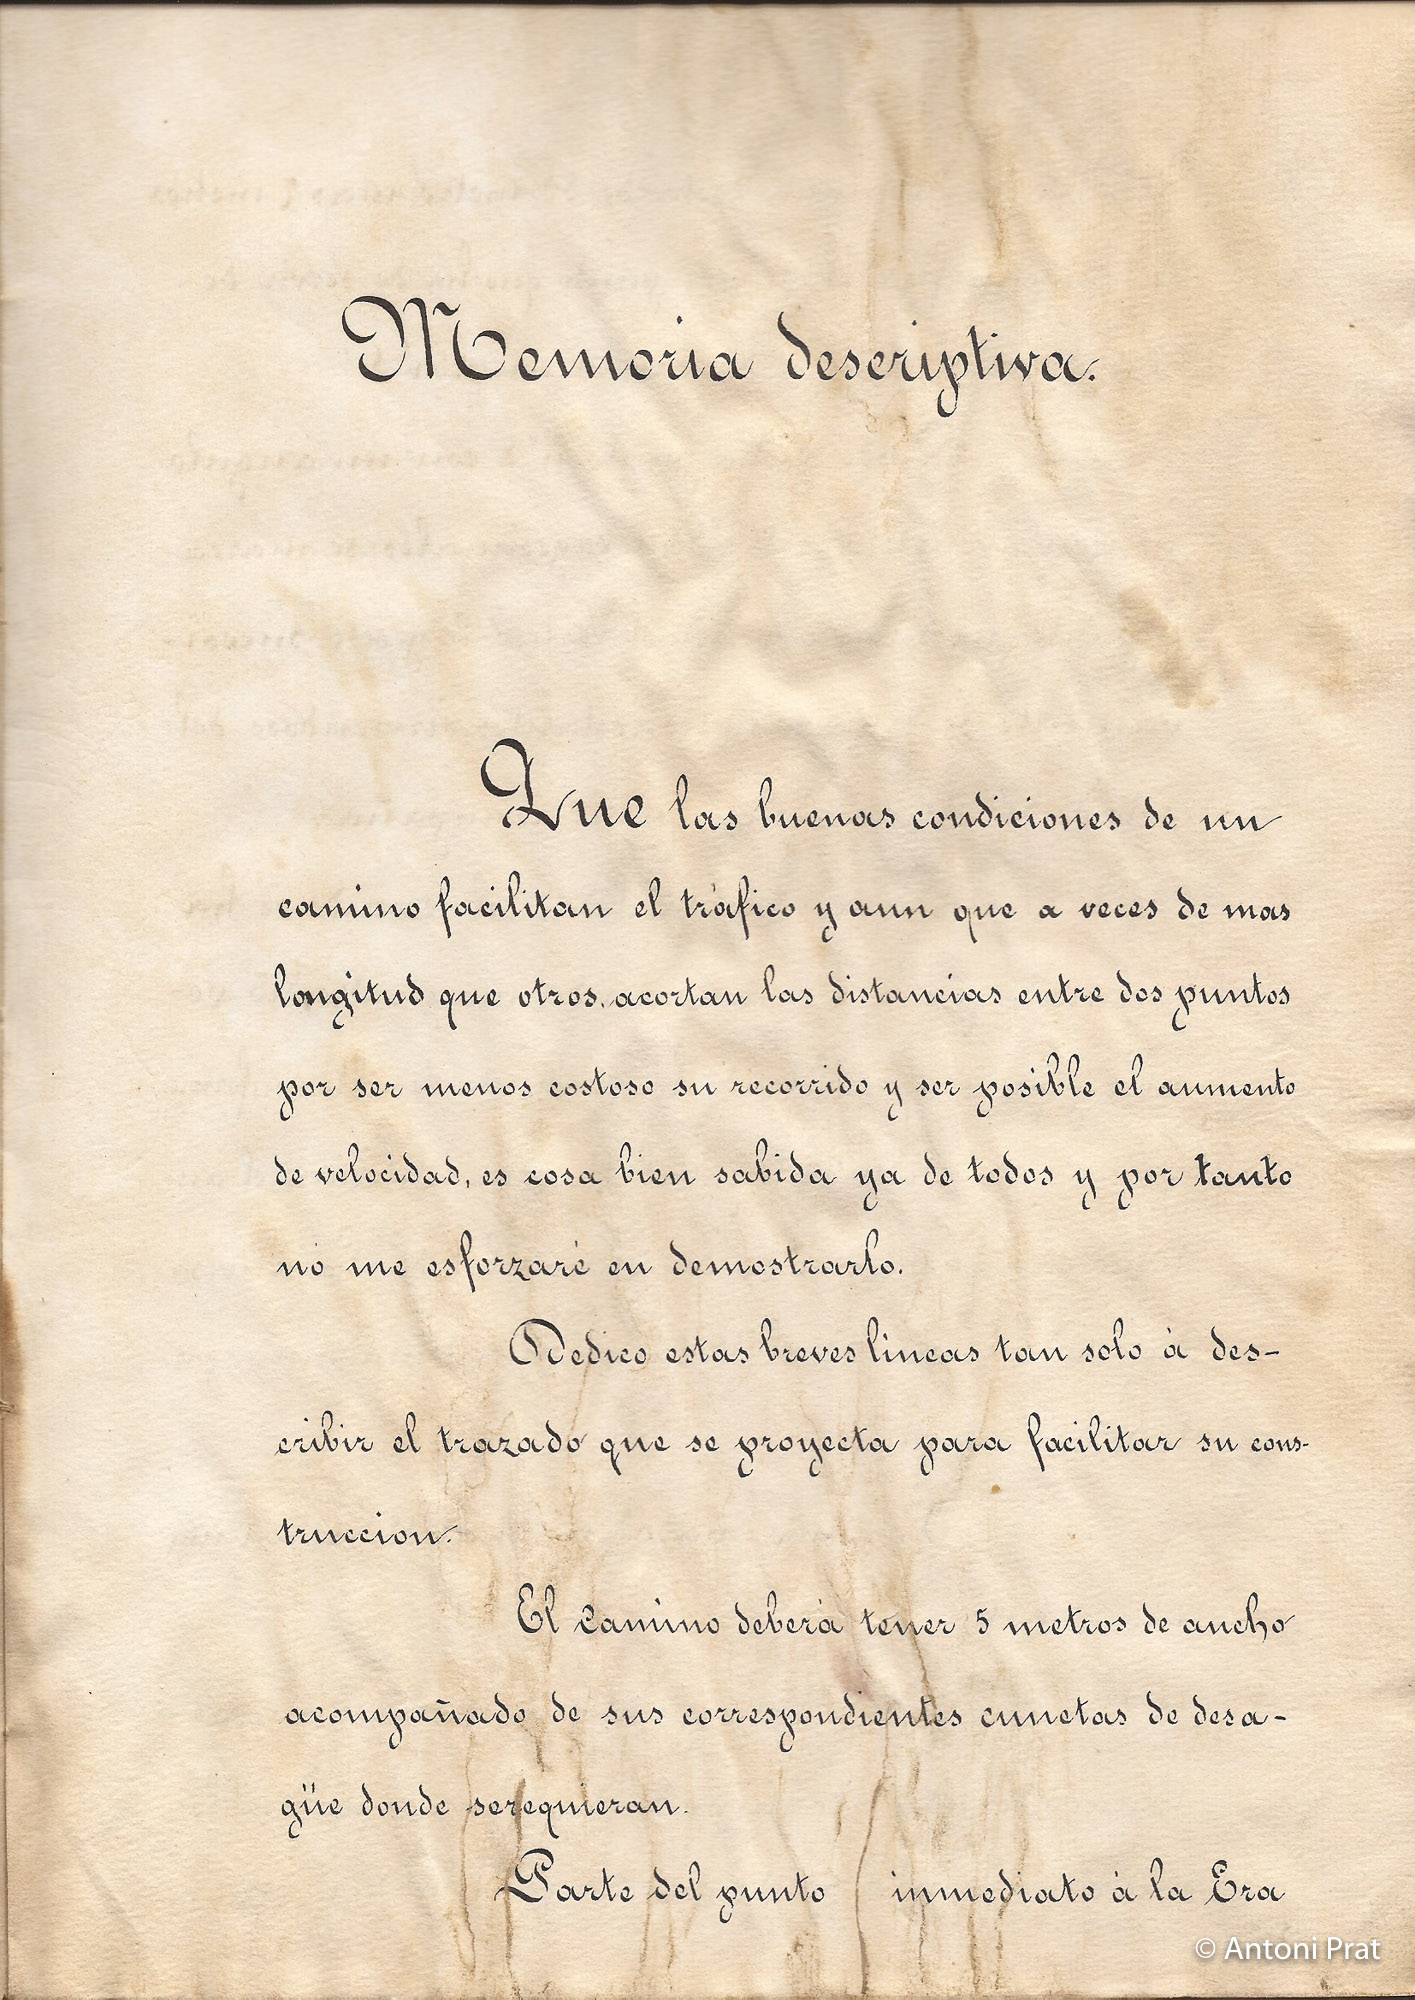 Memoria descriptiva.
Que las buenas condiciones de un
camino facilitan el tráfico y aun que a veces de mas
longitud que otros, acortan las distancias entre dos puntos
por ser menos costoso su recorrido y ser posible el aumento
de velocidad, es cosa bien sabida ya de todos y por tanto
no me esforzaré en demostrarlo.
Dedico estas breves lineas tan solo à des-
cribir el trazado que se proyecta para facilitar su cons-
truccion.
El Camino deberà tener 5 metros de ancho
acompañado de sus correspondientes cunetas de desa-
güe donde se requieran.
Parte del punto inmediato à la Era
© Antoni Prat